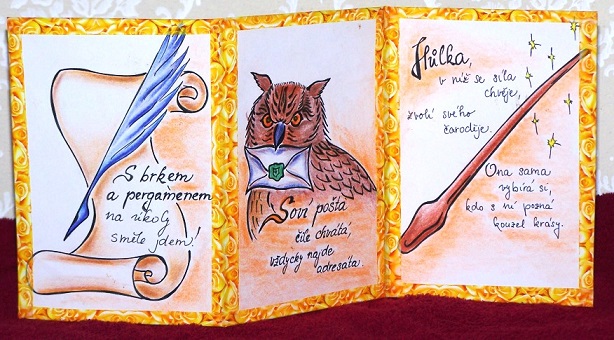 S brkem
a pergamenem
na úkoly
směle jdem!
Soví pošta
čile chvátá,
vždycky najde
adresáta.
Hůlka,
v níž se síla
chvěje,
zvolí svého
čaroděje.
Ona sama
vybírá si,
kdo s ní pozná
kouzel krásy.